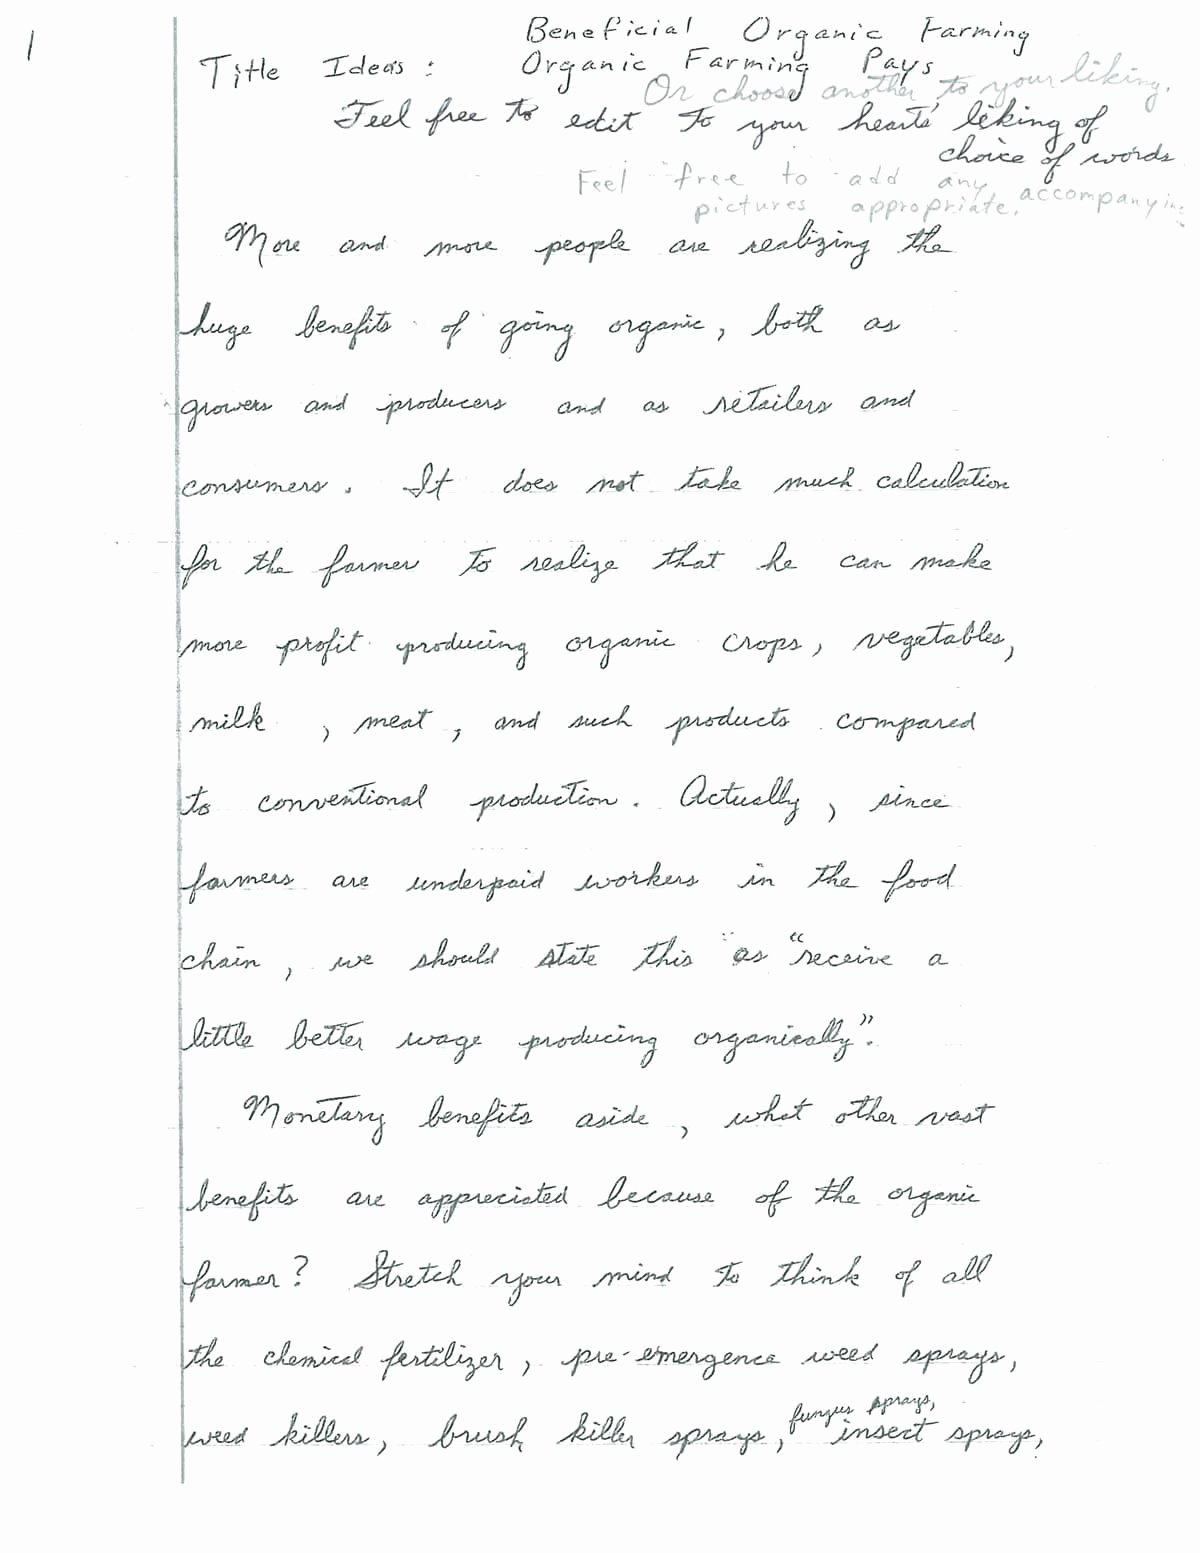 1
Beneficial Organic Farming
Title Ideas: Organic Farming Pays
Or choose another to your liking.
Feel free to edit to your hearts' liking of
choice of words
Feel free to add any accompanying
pictures appropriate.
More and more people are realizing the
huge benefits of going organic, both as
growers and producers and as retailers and
consumers. It does not take much calculation
for the farmer to realize that he can make
more profit producing organic crops, vegetables,
milk, meat, and such products compared
to conventional production. Actually, since
farmers are underpaid workers in the food
chain, we should state this as "receive a
little better wage producing organically".
Monetary benefits aside, what other vast
benefits are appreciated because of the organic
farmer? Stretch your mind to think of all
the chemical fertilizer, pre-emergence weed sprays,
fungus sprays,
weed killers, brush killer sprays, insect sprays,